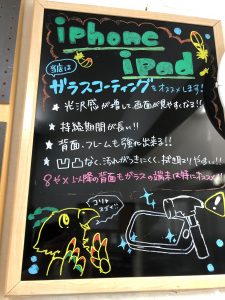 iphone
iPad
当店は
ガラスコーティングをオススメします!
★ 光沢感が増して画面が見やすくなる!!
★ 持続期間が長い!!
★ 背面、フレームも強化出来る!!
★ 凹凸なく、汚れがつきにくく、拭き取りやすい!!
8やX以降の背面もガラスの端末は特にオススメ!!
コリャスゴイ!!